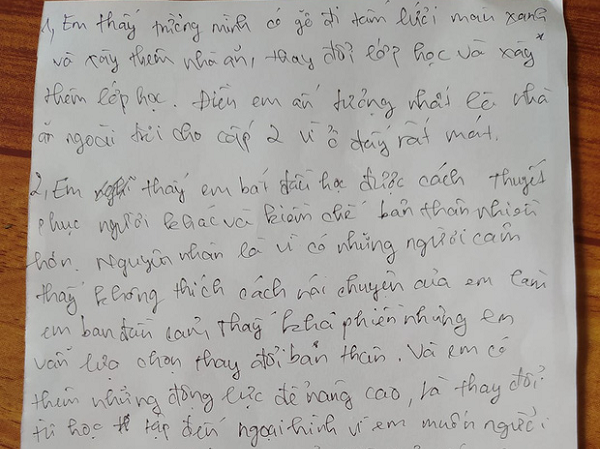 1, Em thấy trường mình có gỡ đi tấm lưới màu xanh
và xây thêm nhà ăn, thay đổi lớp học và xây
thêm lớp học. Điều em ấn tượng nhất là nhà
ăn ngoài trời cho cấp 2 vì ở đấy rất mát.
2, Em thấy em bắt đầu học được cách thuyết
phục người khác và kiềm chế bản thân nhiều
hơn. Nguyên nhân là vì có những người cảm
thấy không thích cách nói chuyện của em làm
em ban đầu thấy khá phiền nhưng em
vẫn lựa chọn thay đổi bản thân. Và em có
thêm những động lực để nâng cao, là thay đổi
từ học tập đến ngoại hình vì em muốn người